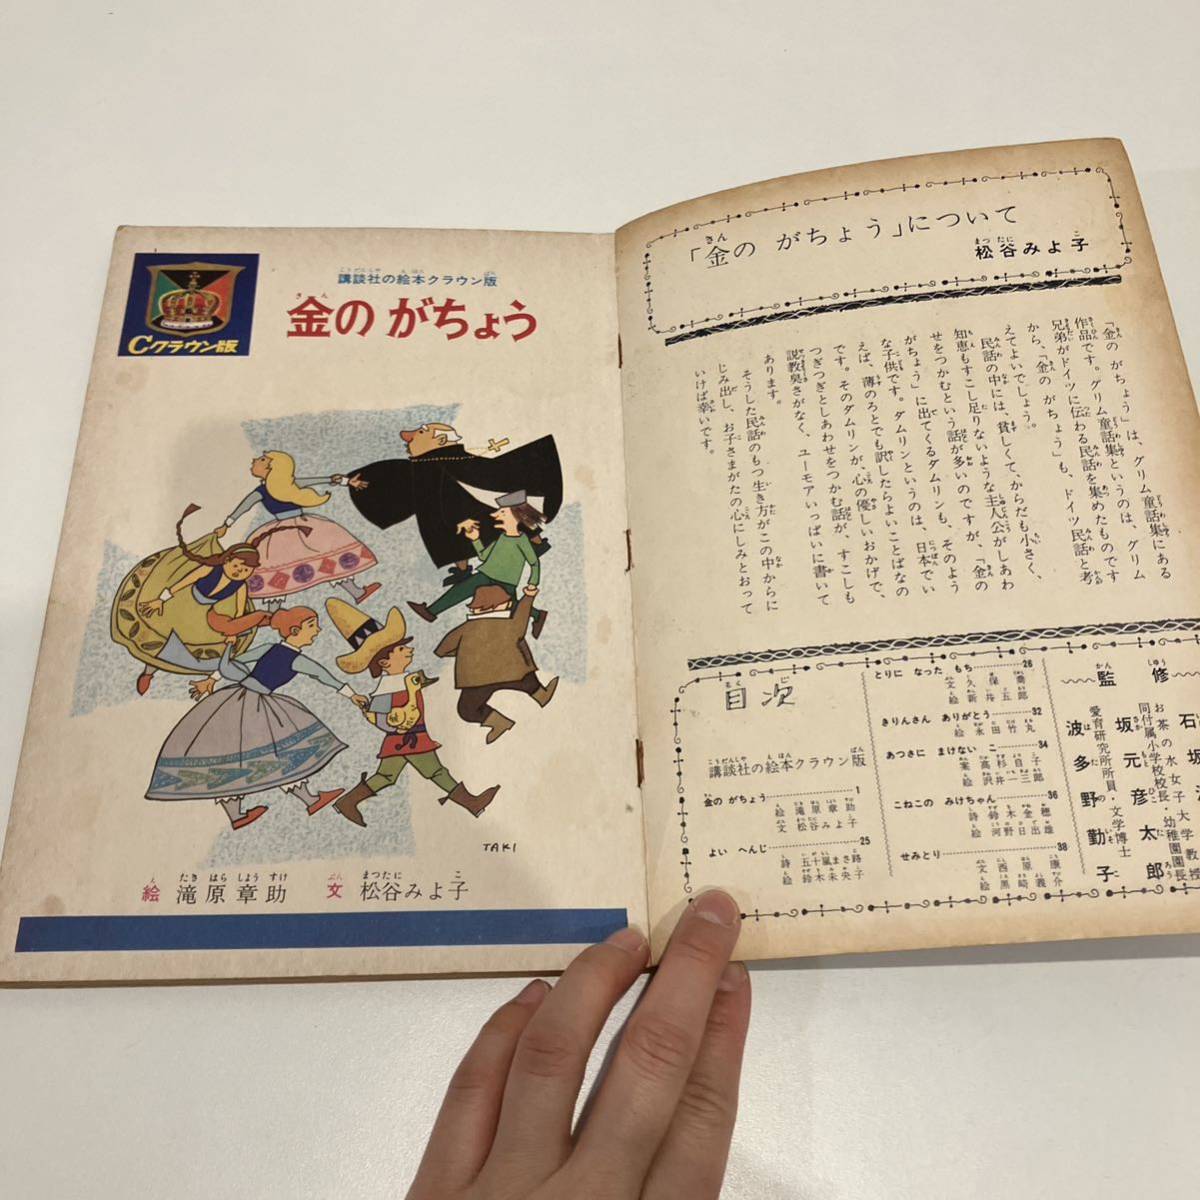 Cクラウン版
講談社の絵本クラウン版
金の がちょう
TAKI
絵 滝原章助 文 松谷みよ子
「金の がちょう」について
松谷みよ子
「金の がちょう」は、グリム童話集にある
作品です。グリム童話集というのは、グリム
兄弟がドイツに伝わる民話を集めたものです
から、「金の がちょう」も、ドイツ民話と考
えてよいでしょう。
民話の中には、貧しくて、からだも小さく、
知恵もすこし足りないような主人公がしあわ
せをつかむという話が多いのですが、「金の
がちょう」に出てくるダムリンも、そのよう
な子供です。ダムリンというのは、日本でい
えば、薄のろとでも訳したらよいことばなの
です。そのダムリンが、心の優しいおかげで、
つぎつぎとしあわせをつかむ話が、すこしも
説教臭さがなく、ユーモアいっぱいに書いて
あります。
そうした民話のもつ生き方がこの中からに
じみ出し、お子さまがたの心にしみとおって
いけば幸いです。
目次
講談社の絵本クラウン版
金の がちょう 1
絵 滝原章助
文 松谷みよ子
よい へんじ 25
詩 五十嵐まさ路
絵 鈴木未央子
とりに なった もち 26
文 久保喬
絵 新井五郎
きりんさん ありがとう 32
絵 永田竹丸
あつさに まけない こ 34
案 高杉自子
絵 沢井一三郎
こねこの みけちゃん 36
詩 鈴木金穂
絵 河野日出雄
せみとり 38
文 西原康
絵 黒崎義介
監修
お茶の水女子大学教授
同付属小学校校長・幼稚園園長
坂元彦太郎
愛育研究所所員・文学博士
波多野勤子